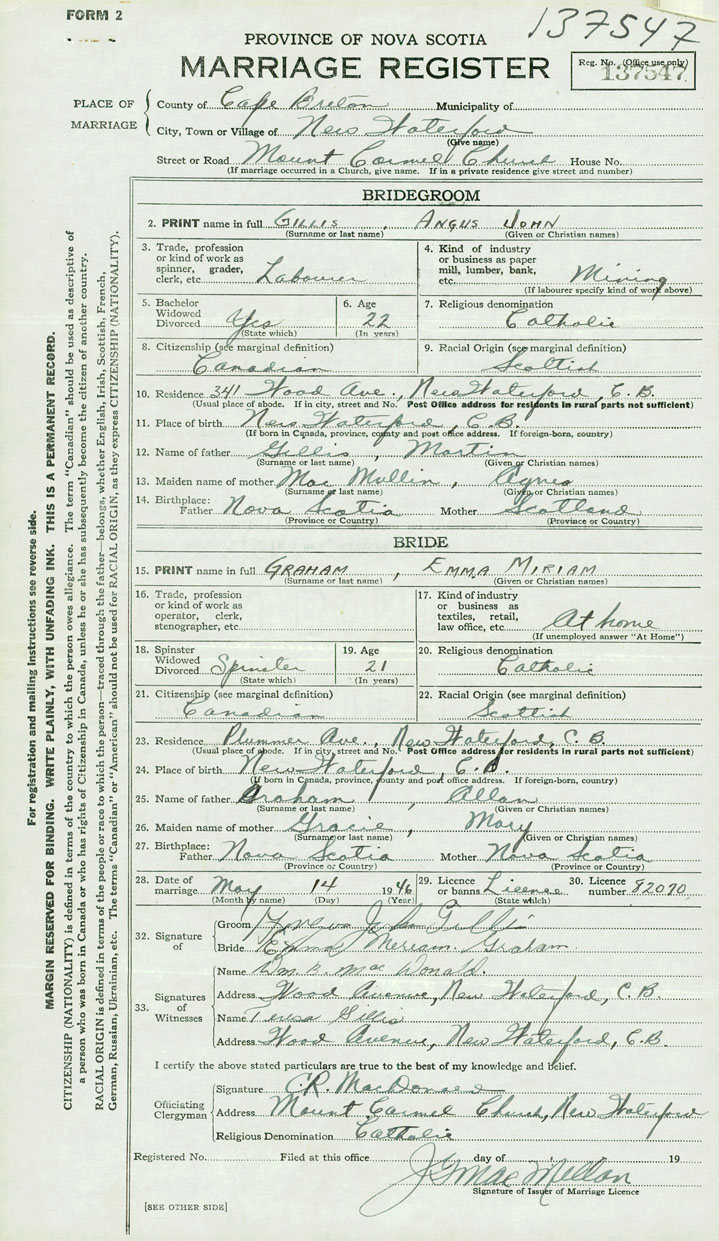 FORM 2
137547
PROVINCE OF NOVA SCOTIA
MARRIAGE REGISTER
Reg. No. (Office use only)
137547
PLACE OF MARRIAGE
County of Cape Breton Municipality of
City, Town or Village of New Waterford
(Give name)
Street or Road Mount Carmel Church House No.
(If marriage occurred in a Church, give name. If in a private residence give street and number)
BRIDEGROOM
2. PRINT name in full GILLIS, ANGUS JOHN
(Surname or last name) (Given or Christian names)
3. Trade, profession or kind of work as spinner, grader, clerk, etc. Labourer
4. Kind of industry or business as paper mill, lumber, bank, etc. Mining
(If labourer specify kind of work above)
5. Bachelor Widowed Divorced Yes
(State which)
6. Age 22
(In years)
7. Religious denomination
Catholic
8. Citizenship (see marginal definition)
Canadian
9. Racial Origin (see marginal definition)
Scottish
10. Residence 341 Wood Ave., New Waterford, C.B.
(Usual place of abode. If in city, street and No. Post Office address for residents in rural parts not sufficient)
11. Place of birth New Waterford, C.B.
(If born in Canada, province, county and post office address. If foreign-born, country)
12. Name of father Gillis, Martin
(Surname or last name) (Given or Christian names)
13. Maiden name of mother Mac Mullin, Agnes
(Surname or last name) (Given or Christian names)
14. Birthplace: Father Nova Scotia Mother Scotland
(Province or Country) (Province or Country)
BRIDE
15. PRINT name in full GRAHAM, EMMA MIRIAM
(Surname or last name) (Given or Christian names)
16. Trade, profession or kind of work as operator, clerk, stenographer, etc.
17. Kind of industry or business as textiles, retail, law office, etc. At home
(If unemployed answer "At Home")
18. Spinster Widowed Divorced Spinster
(State which)
19. Age 21
(In years)
20. Religious denomination
Catholic
21. Citizenship (see marginal definition)
Canadian
22. Racial Origin (see marginal definition)
Scottish
23. Residence Plummer Ave., New Waterford, C.B.
(Usual place of abode. If in city, street and No. Post Office address for residents in rural parts not sufficient)
24. Place of birth New Waterford, C.B.
(If born in Canada, province, county and post office address. If foreign-born, country)
25. Name of father Graham, Allan
(Surname or last name) (Given or Christian names)
26. Maiden name of mother Gracie, Mary
(Surname or last name) (Given or Christian names)
27. Birthplace: Father Nova Scotia Mother Nova Scotia
(Province or Country) (Province or Country)
28. Date of marriage May 14 1946
(Month by name) (Day) (Year)
29. Licence or banns Licence
(State which)
30. Licence number 82070
32. Signature of
Groom Angus John Gillis
Bride Emma Meriam Graham
33. Signatures of Witnesses
Name Wm. B. Mac Donald.
Address Wood Avenue, New Waterford, C.B.
Name Teresa Gillis
Address Wood Avenue, New Waterford, C.B.
I certify the above stated particulars are true to the best of my knowledge and belief.
Officiating Clergyman
Signature C.R. MacDonald
Address Mount Carmel Church, New Waterford
Religious Denomination Catholic
Registered No. Filed at this office day of 19
J G Mac Mellan
Signature of Issuer of Marriage Licence
[SEE OTHER SIDE]
For registration and mailing instructions see reverse side.
MARGIN RESERVED FOR BINDING. WRITE PLAINLY, WITH UNFADING INK. THIS IS A PERMANENT RECORD.
CITIZENSHIP (NATIONALITY) is defined in terms of the country to which the person owes allegiance. The term "Canadian" should be used as descriptive of
a person who was born in Canada or who has rights of Citizenship in Canada, unless he or she has subsequently become the citizen of another country.
RACIAL ORIGIN is defined in terms of the people or race to which the person—traced through the father—belongs, whether English, Irish, Scottish, French,
German, Russian, Ukrainian, etc. The terms "Canadian" or "American" should not be used for RACIAL ORIGIN, as they express CITIZENSHIP (NATIONALITY).